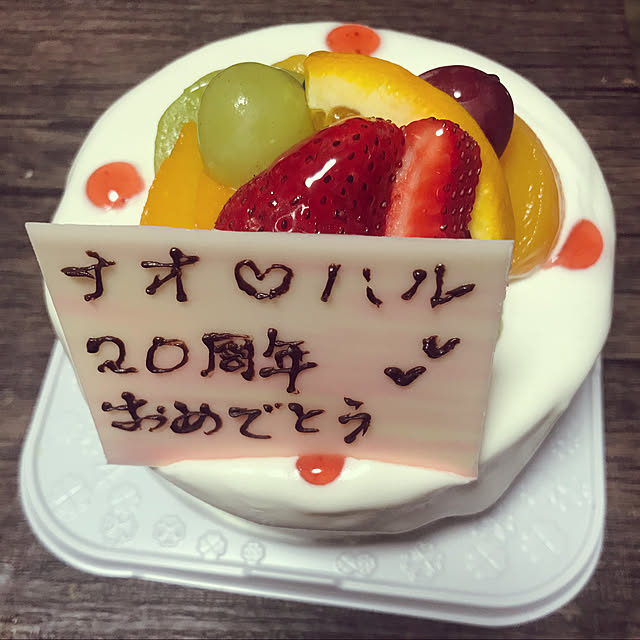 ナオ♡ハル
20周年
おめでとう